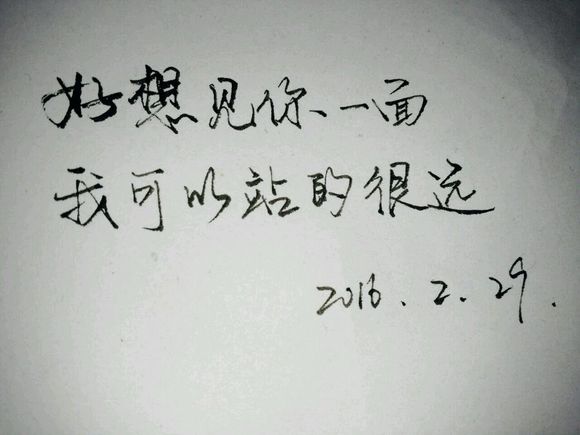 好想见你一面
我可以站的很远
2016.2.29.